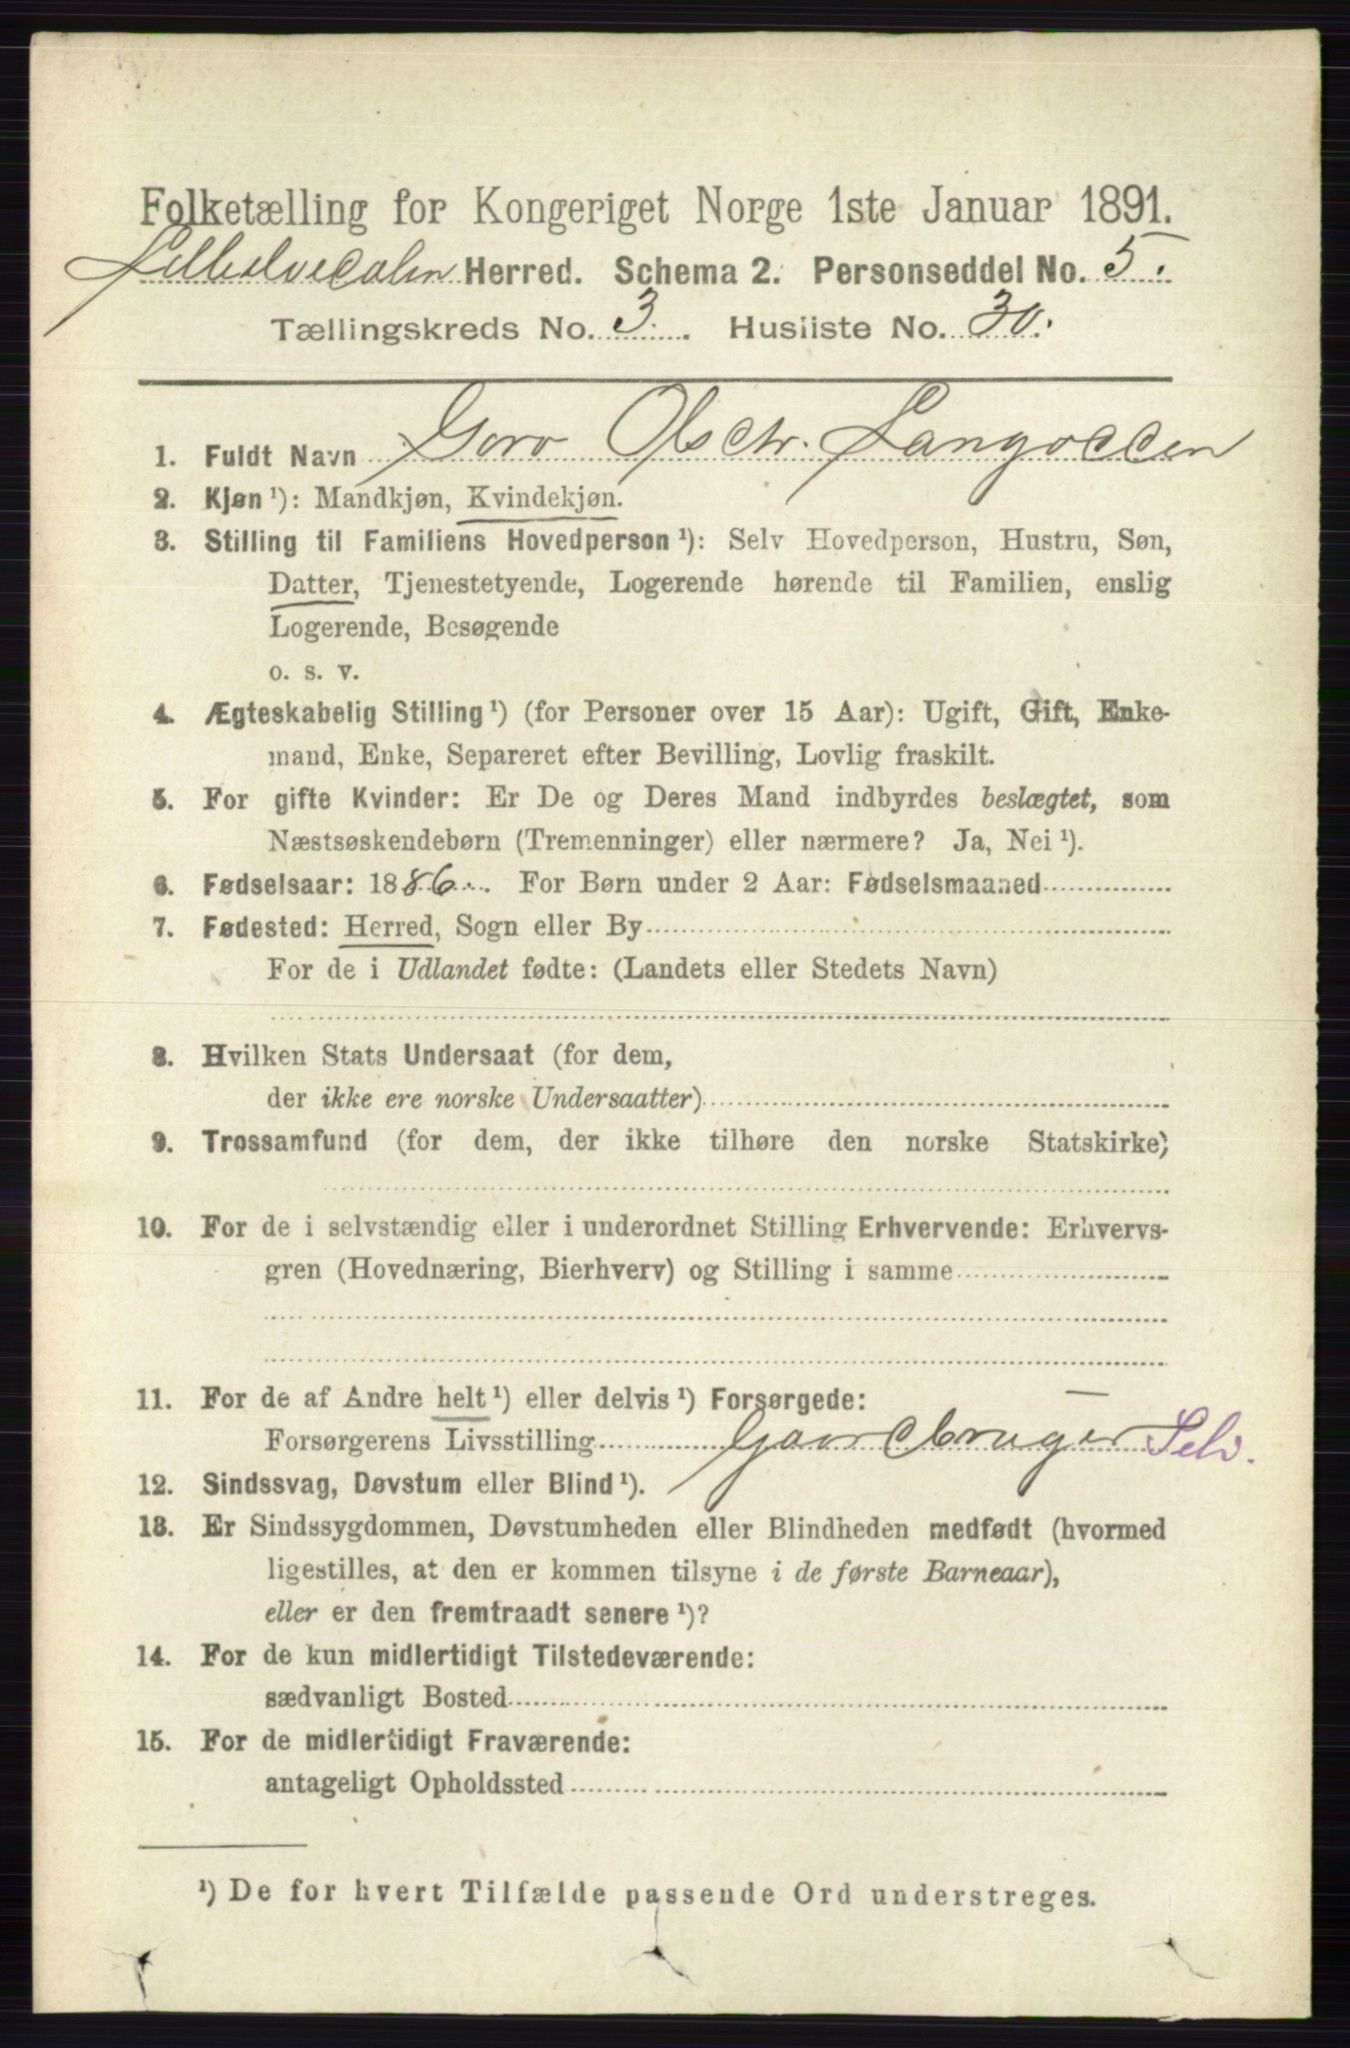 Folketælling for Kongeriget Norge 1ste Januar 1891.
Lilleelvedalen Herred. Schema 2. Personseddel No. 5.
Tællingskreds No. 3. Husliste No. 30.
1. Fuldt Navn Goro Olsdtr. Langodden
2. Kjøn ¹): Mandkjøn, Kvindekjøn.
3. Stilling til Familiens Hovedperson ¹): Selv Hovedperson, Hustru, Søn,
Datter, Tjenestetyende, Logerende hørende til Familien, enslig
Logerende, Besøgende
o. s. v.
4. Ægteskabelig Stilling ¹) (for Personer over 15 Aar): Ugift, Gift, Enke-
mand, Enke, Separeret efter Bevilling, Lovlig fraskilt.
5. For gifte Kvinder: Er De og Deres Mand indbyrdes beslægtet, som
Næstsøskendebørn (Tremenninger) eller nærmere? Ja, Nei ¹).
6. Fødselsaar: 1886. For Børn under 2 Aar: Fødselsmaaned
7. Fødested: Herred, Sogn eller By
For de i Udlandet fødte: (Landets eller Stedets Navn)
8. Hvilken Stats Undersaat (for dem,
der ikke ere norske Undersaatter)
9. Trossamfund (for dem, der ikke tilhøre den norske Statskirke)
10. For de i selvstændig eller i underordnet Stilling Erhvervende: Erhvervs-
gren (Hovednæring, Bierhverv) og Stilling i samme
11. For de af Andre helt ¹) eller delvis ¹) Forsørgede:
Forsørgerens Livsstilling Gaardbruger Selv.
12. Sindssvag, Døvstum eller Blind ¹).
13. Er Sindssygdommen, Døvstumheden eller Blindheden medfødt (hvormed
ligestilles, at den er kommen tilsyne i de første Barneaar),
eller er den fremtraadt senere ¹)?
14. For de kun midlertidigt Tilstedeværende:
sædvanligt Bosted
15. For de midlertidigt Fraværende:
antageligt Opholdssted
¹) De for hvert Tilfælde passende Ord understreges.